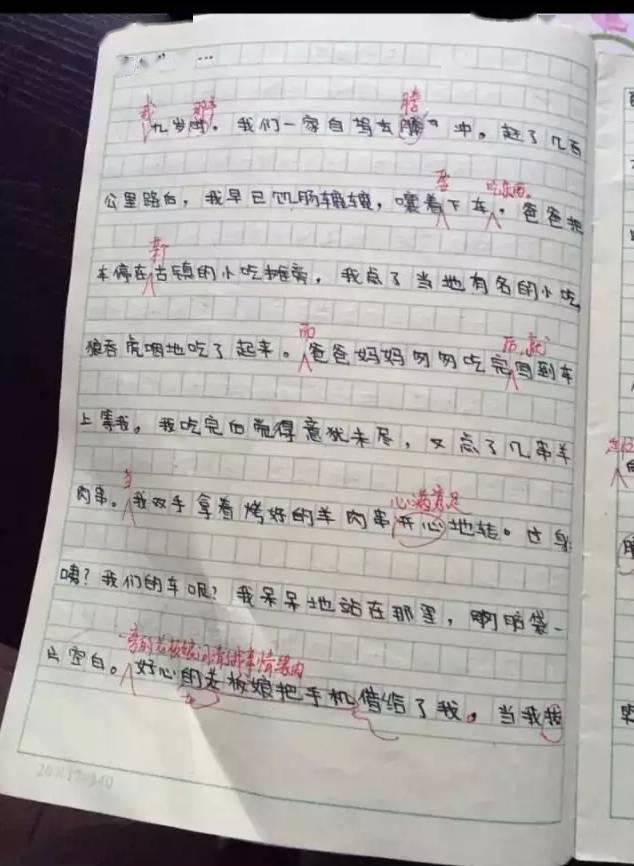 我 那年 腾
九岁时。我们一家自驾去腾冲。赶了几百
李 吃东西。
公里路后，我早已饥肠辘辘，嚷着下车，爸爸把
新
车停在古镇的小吃摊旁，我点了当地有名的小吃
而 后，就
狼吞虎咽地吃了起来。爸爸妈妈匆匆吃完回到车
上等我。我吃完后觉得意犹未尽，又点了几串羊
当 心满意足
肉串。我双手拿着烤好的羊肉串开心地转。过身
咦？我们的车呢？我呆呆地站在那里，啊脑袋一
旁的老板娘问清我事情
片空白。好心的老板娘把手机借给了我。当我